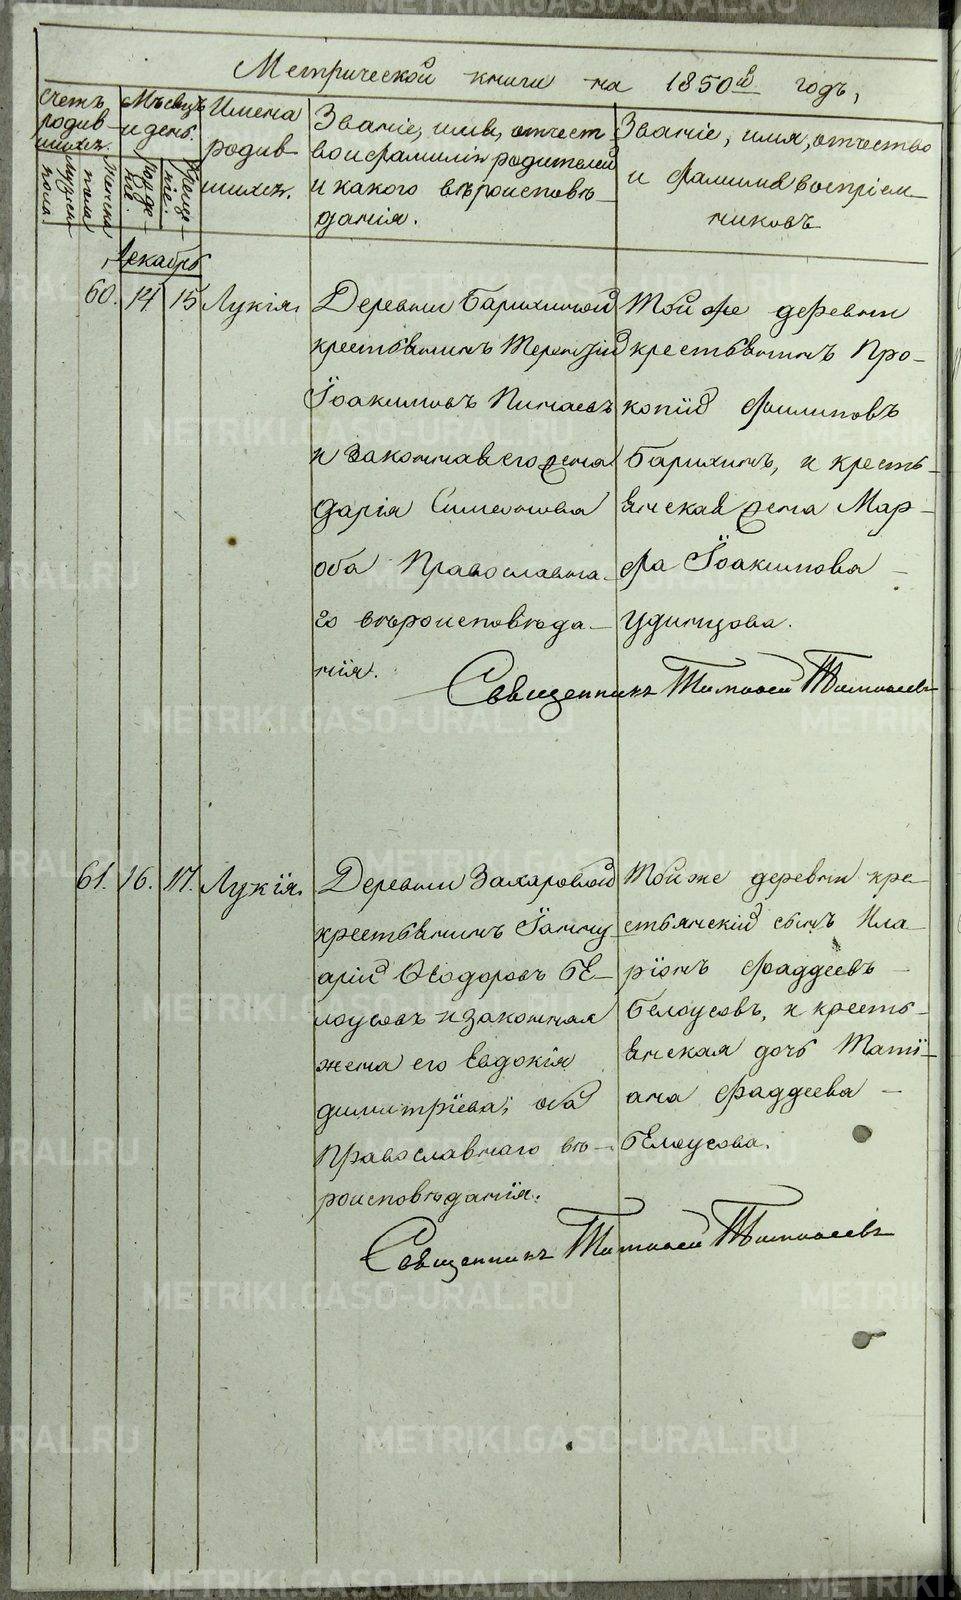 Метрической книги на 1850й годъ,
Счетъ родив-шихся.
Мужеска пола
Женска пола
Мѣсяцъ и день.
Рожде-нiе.
Креще-нiе.
Имена родив-шихся.
Званiе, имя, отчест-
во и фамилiя родителей,
и какого вѣроисповѣ-
данiя.
Званiе, имя, отчество
и фамилiя воспрiем-
никовъ
Декабрь
60. 14 15 Лукiя.
Деревни Барихиной
крестьянинъ Терентiй
Їоакимовъ Пинаевъ
и законная его жена
Дарiя Симеонова
оба Православна-
го вѣроисповѣда-
нiя.
Той же деревни
крестьянинъ Про-
копiй Филиповъ
Барихинъ, и кресть-
янская жена Мар-
фа Їоакимова
Удинцова.
Священникъ Тимофей Тимофеевъ
61. 16. 17. Лукiя.
Деревни Захаровой
крестьянинъ Їанну-
арiй Ѳеодоровъ Бѣ-
лоусовъ и законная
жена его Евдокiя
Димитрiева; оба
Православнаго вѣ-
роисповѣданiя.
Той же деревни кре-
стьянскiй сынъ Ила-
рiонъ Фаддеевъ
Белоусовъ, и кресть-
янская дочь Татi-
ана Фаддеева
Бѣлоусова.
Священникъ Тимофей Тимофеевъ
METRIKI.GASO-URAL.RU